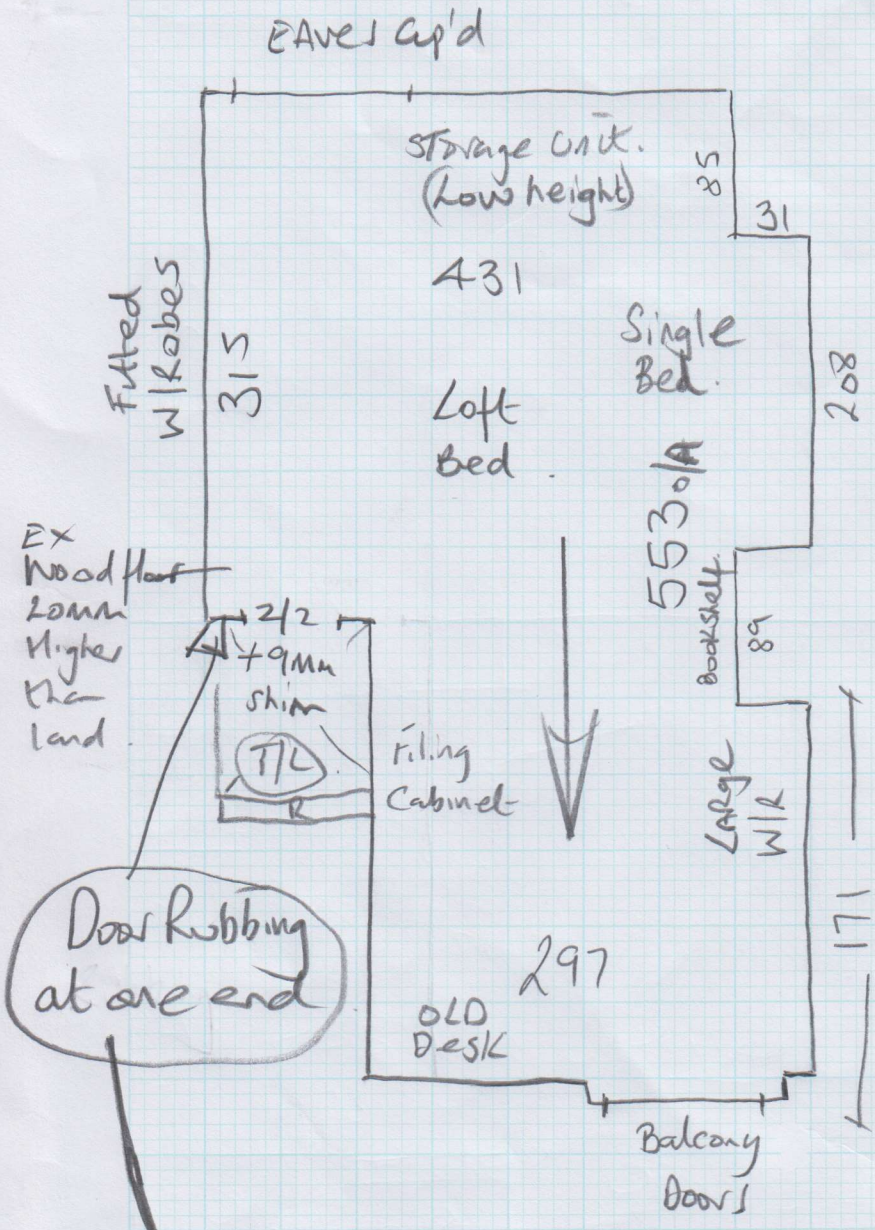 EAves Cup'd
Storage Unit.
(Low height)
85
31
431
Fitted
W/Robes
315
Single
Bed.
208
Loft
Bed
553 o/A
Ex
Wood floor
20mm
Higher
than
land
2/2
+9mm
shim
Bookshelf
89
T/L
R
Filing
Cabinet
LARge
W/R
171
Door Rubbing
at one end
297
OLD
Desk
Balcony
Doors